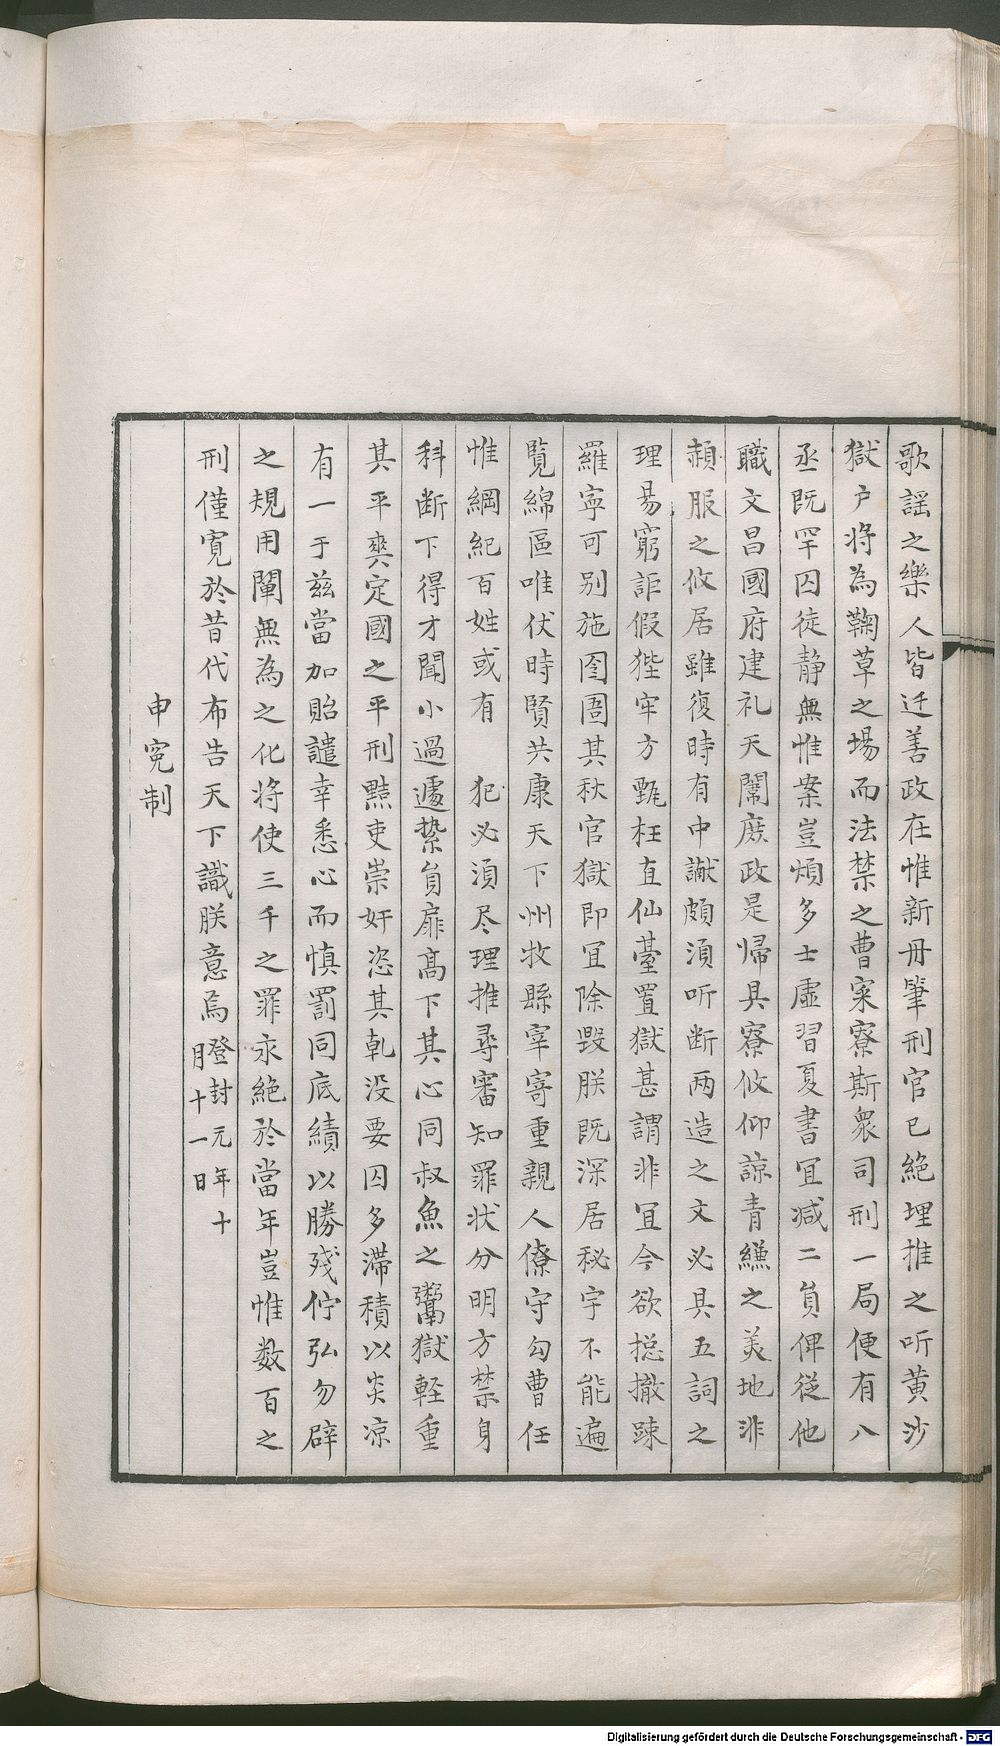 歌謡之樂人皆迁善政在惟新丹筆刑官已絶埋推之听黄沙
獄户将為鞠草之場而法禁之曹寀寮斯衆司刑一局便有八
丞既罕囚徒静無惟案豈煩多士虛習夏書冝减二負俾従他
職文昌國府建礼天闈庶政是帰具寮攸仰諒青縑之美地非
頳服之攸居雖復時有中讞頗湏听断两造之文必具五詞之
理易窮詎假狴牢方甄枉直仙䑓置獄甚謂非冝今欲捴撤踈
羅寧可别施囹圄其秋官獄即冝除毀朕既深居秘宇不能遍
覧綿區唯伏時賢共康天下州牧縣宰寄重親人僚守勾曹任
惟綱紀百姓或有 犯必湏尽理推尋審知罪状分明方禁身
科断下得才聞小過遽縶負扉髙下其心同叔魚之鬻獄軽重
其平爽定國之平刑黠吏崇奸恣其乹没要囚多滞積以炎凉
有一于兹當加貽譴幸悉心而慎罰同底績以勝残佇弘勿辟
之規用闡無為之化将使三千之罪永絶於當年豈惟数百之
刑僅寛於昔代布告天下識朕意焉 登封元年十月十一日
申寃制
Digitalisierung gefördert durch die Deutsche Forschungsgemeinschaft - DFG